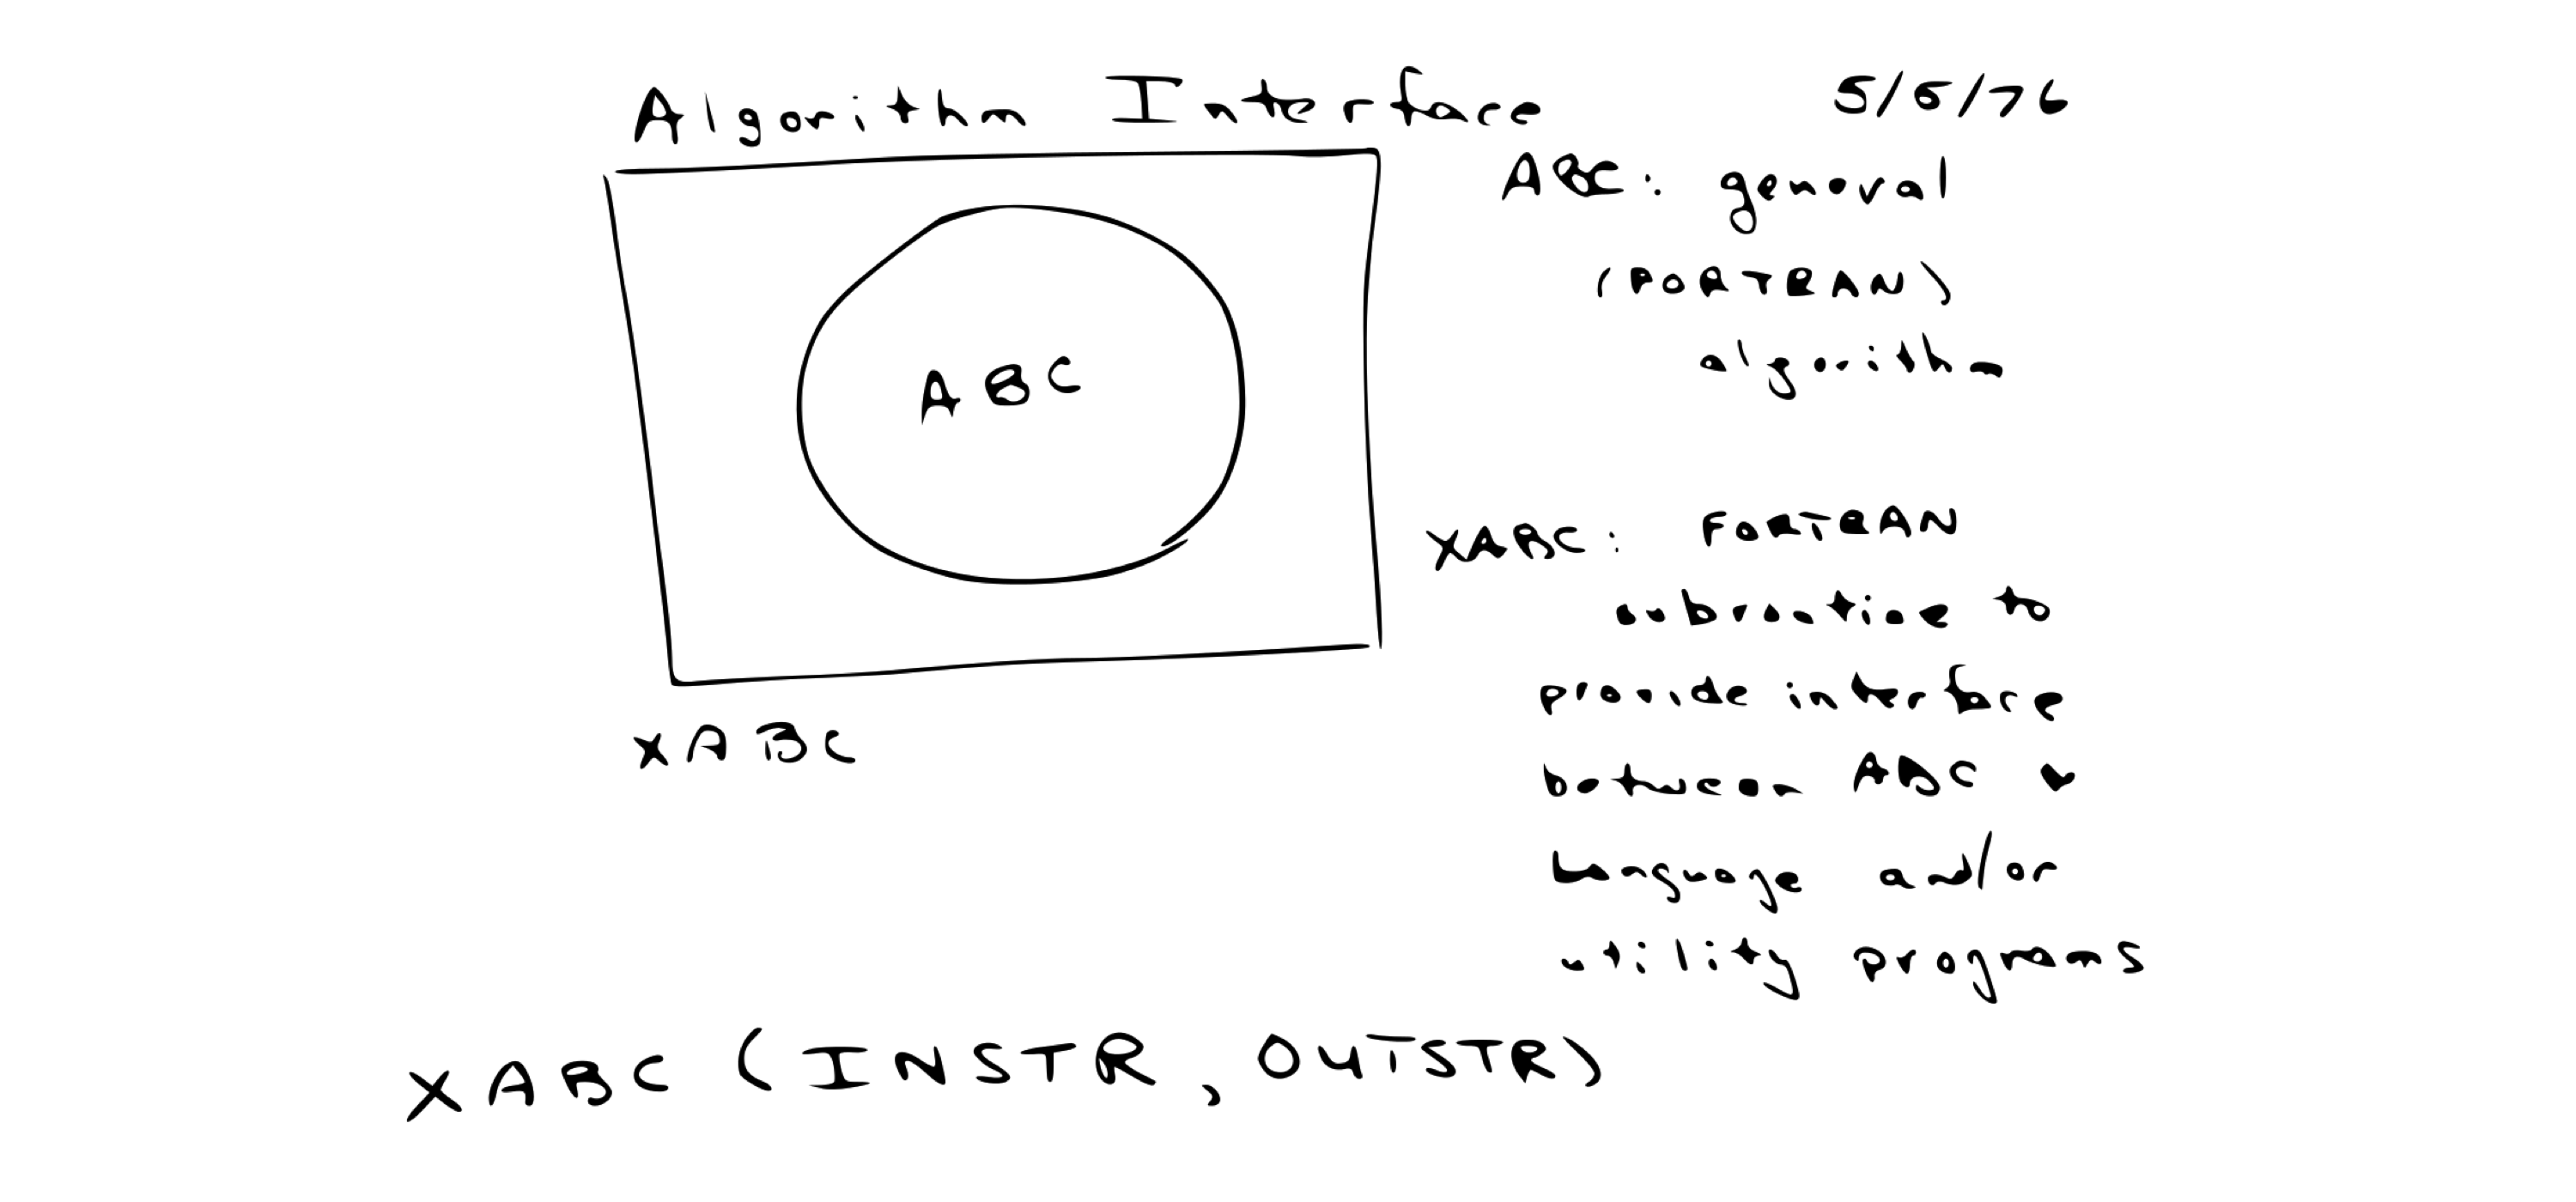 Algorithm Interface 5/5/76
ABC
XABC
ABC: general
(FORTRAN)
algorithm
XABC: FORTRAN
subroutine to
provide interface
between ABC &
language and/or
utility programs
XABC (INSTR, OUTSTR)